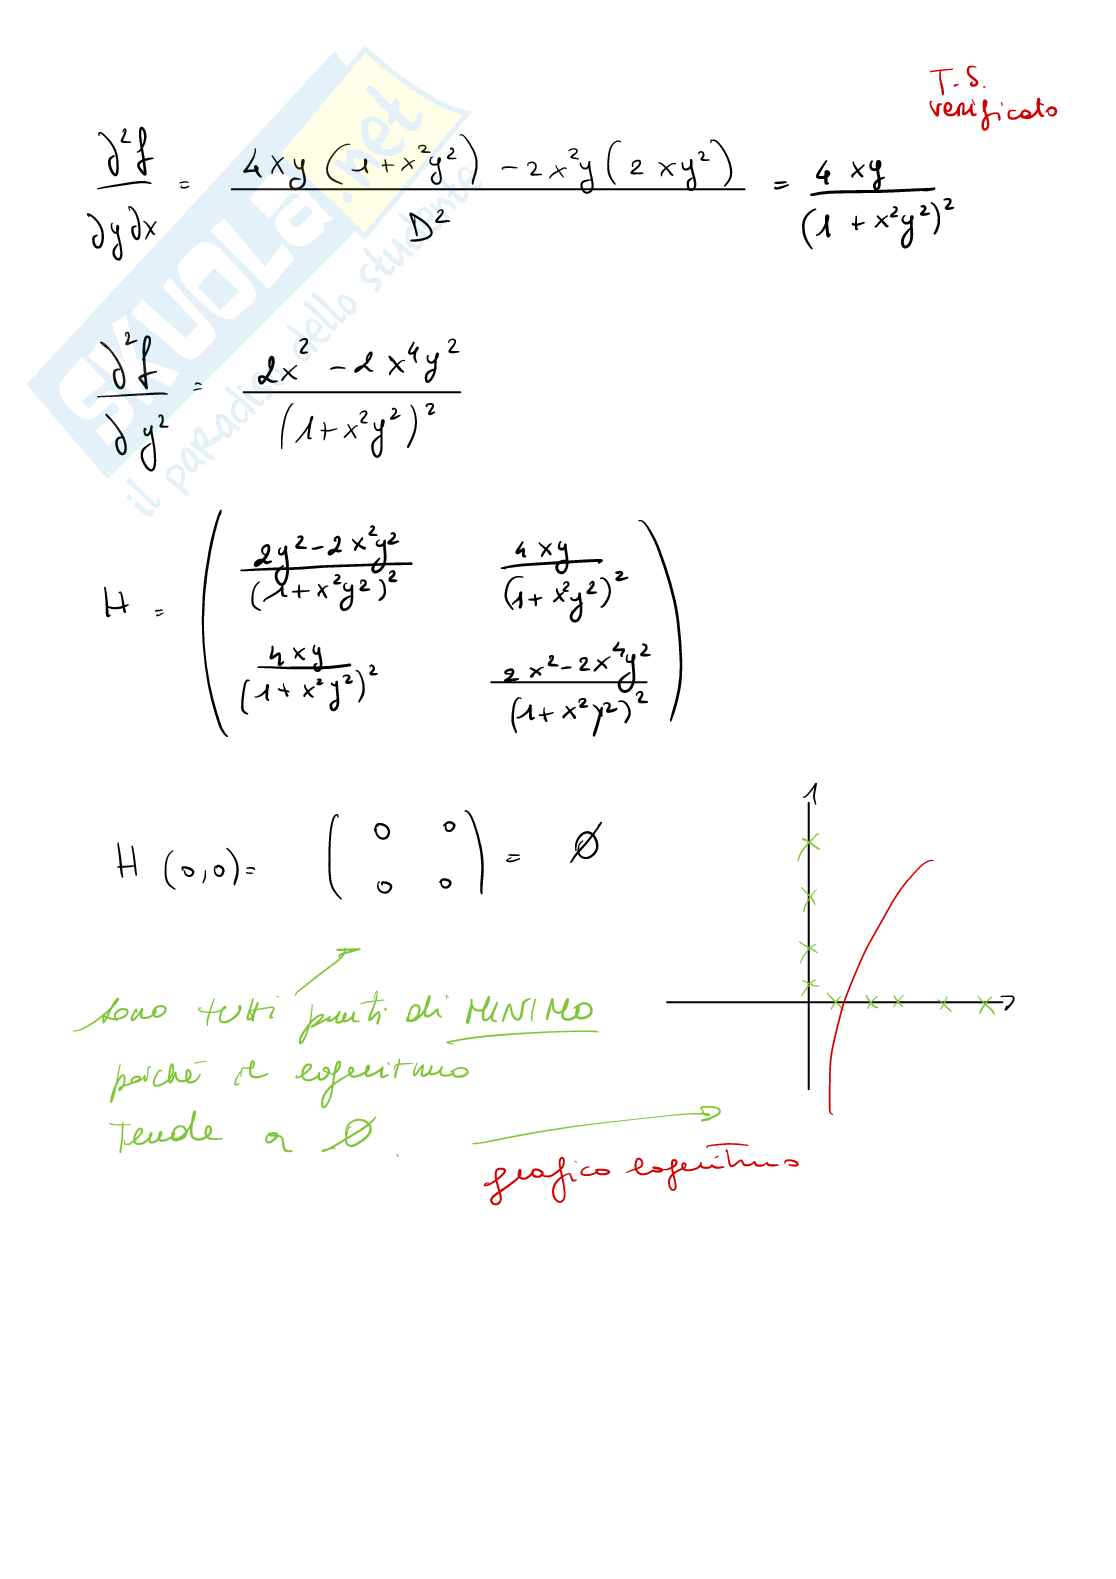 T.S.
verificato
∂²f/∂y∂x = (4xy(1+x²y²) - 2x²y(2xy²))/D² = 4xy/(1+x²y²)²
∂²f/∂y² = (2x² - 2x⁴y²)/(1+x²y²)²
H = ( (2y²-2x²y²)/(1+x²y²)² 4xy/(1+x²y²)²
4xy/(1+x²y²)² (2x²-2x⁴y²)/(1+x²y²)² )
H (0,0) = ( 0 0
0 0 ) = ∅
sono tutti punti di MINIMO
poiché il logaritmo
tende a ∅
grafico logaritmo
SKUOLA.net
il paradiso dello studente